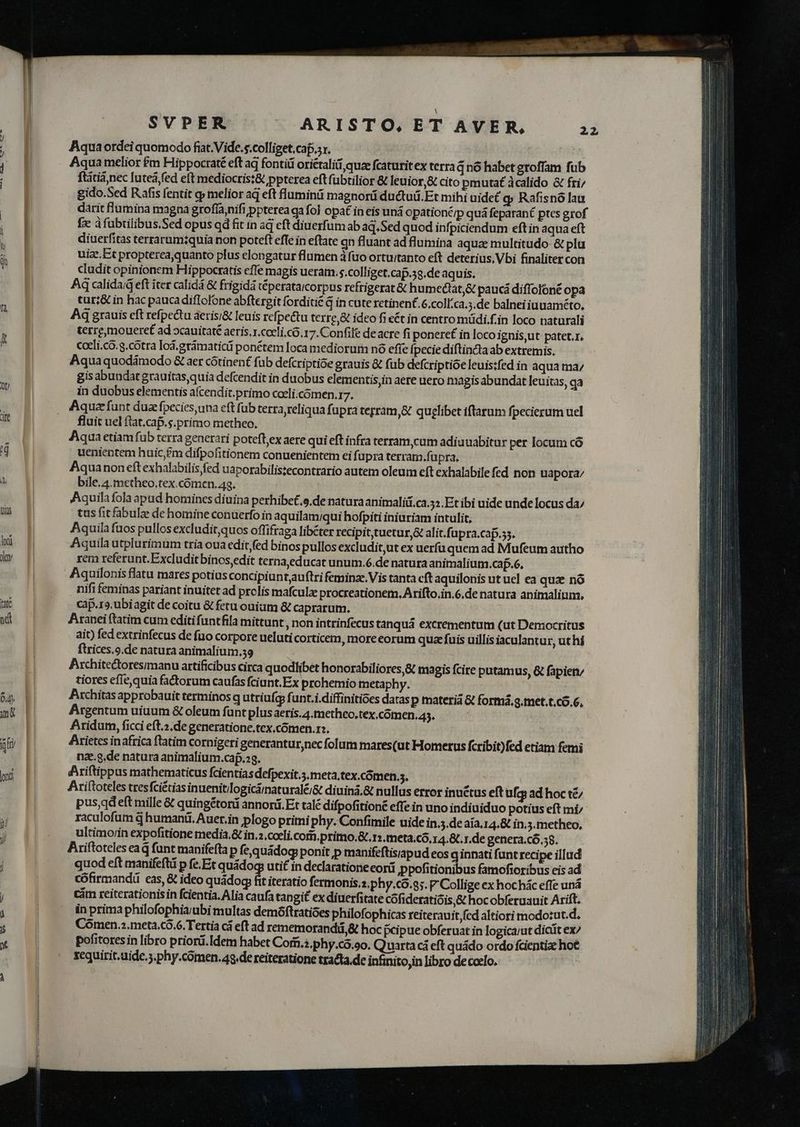 SVPER ARISTO, ET AVER, 22
Aqua ordei quomodo fiat. Vide.5.colliget.cap̃.31.
Aqua melior ẽm Hippocratẽ est aq̃ fontiũ oriẽtaliũ, quæ scaturit ex terra q̃ nõ habet grossam sub
stãtiã, nec luteã, sed est mediocris:& ppterea est subtilior & leuior,& cito pmutat̃ à calido & fri/
gido. Sed Rasis sentit ꝙ melior aq̃ est fluminũ magnorũ ductuũ. Et mihi uidet̃ ꝙ Rasis nõ lau
darit flumina magna grossa, nisi ppterea qa sol opat̃ in eis unã opationẽ/p quã separant̃ ptes grof
sæ à subtilibus. Sed opus qd fit in aq̃ est diuersum ab aq̃. Sed quod inspiciendum est in aqua est
diuersitas terrarum:quia non potest esse in estate qn fluant ad flumina aquæ multitudo & plu
uiæ. Et propterea, quanto plus elongatur flumen à suo ortu/tanto est deterius. Vbi finaliter con
cludit opinionem Hippocratis esse magis ueram.5.colliget.cap̃.38.de aquis.
Aq̃ calida/q̃ est iter calidã & frigidã tẽperata/corpus refrigerat & humectat,& paucã dissolõne opa
tur:& in hac pauca dissolone abstergit sorditiẽ q̃ in cute retinent̃.6.coll̃.ca.5.de balnei iuuamẽto.
Aq̃ grauis est respectu aeris/& leuis respectu terre,& ideo si eẽt in centro mũdi.s.in loco naturali
terre, moueret̃ ad ɔcauitatẽ aeris.1.cœli.cõ.17. Consile de acre si poneret̃ in loco ignis, ut patet.1.
cœli.cõ.9.cõtra Ioã.grãmaticũ ponẽtem loca mediorum nõ esse specie distincta ab extremis.
Aqua quodãmodo & aer cõtinent̃ sub descriptiõe grauis & sub descriptiõe leuis:sed in aqua ma/
gis abundat grauitas, quia descendit in duobus elementis, in aere uero magis abundat leuitas, qa
in duobus elementis ascendit. primo cœli.cõmen.17.
Aquæ sunt duæ species, una est sub terra, reliqua supra terram,& quęlibet istarum specierum uel
fluit uel stat.cap̃.5.primo metheo.
Aqua etiam sub terra generari potest, ex aere qui est infra terram, cum adiuuabitur per locum cõ
uenientem huic, ẽm dispositionem conuenientem ei supra terram.supra.
Aqua non est exhalabilis, sed uaporabilis:econtrario autem oleum est exhalabile sed non uapora/
bile.4.metheo.tex.cõmen.49.
Aquila sola apud homines diuina perhibet̃.9.de natura animaliũ.ca.32. Et ibi uide unde locus da/
tus sit fabulæ de homine conuerso in aquilam/qui hospiti iniuriam intulit.
Aquila suos pullos excludit, quos offifraga libẽter recipit, tuetur,& alit.supra.cap̃.33.
Aquila utplurimum tria oua edit, sed binos pullos excludit, ut ex uersu quem ad Musæum autho
rem referunt. Excludit binos, edit terna, educat unum.6.de natura animalium.cap̃.6.
Aquilonis flatu mares potius concipiunt, austri feminæ. Vis tanta est aquilonis ut uel ea quæ nõ
nisi feminas pariant inuitet ad prolis masculæ procreationem. Aristo.in.6.de natura animalium.
cap̃.19.ubi agit de coitu & fetu ouium & caprarum.
Aranei statim cum editi sunt fila mittunt, non intrinsecus tanquã excrementum (ut Democritus
ait) sed extrinsecus de suo corpore ueluti corticem, more eorum quæ suis uillis iaculantur, ut hi
strices.9.de natura animalium.39
Architectores/manu artificibus circa quodlibet honorabiliores,& magis scire putamus, & sapien/
tiores esse, quia factorum causas sciunt. Ex prohemio metaphy.
Architas approbauit terminos q utriusꝙ sunt.i.diffinitiões datas p materiã & formã.9.met.t.cõ.6.
Argentum uiuum & oleum sunt plus aeris.4.metheo.tex.cõmen.45.
Aridum, sicci est.2.de generatione.tex.cõmen.12.
Arietes in africa statim cornigeri generantur, nec solum mares(ut Homerus scribit)sed etiam femi
næ.8.de natura animalium.cap̃.28.
Aristippus mathematicus scientias despexit.3.meta.tex.cõmen.3.
Aristoteles tres sciẽtias inuenit/logicã/naturalẽ/& diuinã.& nullus error inuẽtus est usꝙ ad hoc tẽ/
pus, qd est mille & quingẽtorũ annorũ. Et talẽ dispositionẽ esse in uno indiuiduo potius est mi/
raculosum q̃ humanũ. Auer.in plogo primi phy. Consimile uide in.3.de aĩa.14.& in.3.metheo.
ultimo/in expositione media.& in.2.cœli.com̃.primo.&.12.meta.cõ.14.&.1.de genera.cõ.38.
Aristoteles ea q̃ sunt manifesta p se, quãdoꝙ ponit p manifestis/apud eos q innati sunt recipe illud
quod est manifestũ p se. Et quãdoꝙ utit̃ in declaratione eorũ ppositionibus famosioribus eis ad
cõfirmandũ eas, & ideo quãdoꝙ fit iteratio sermonis.2.phy.cõ.85. Collige ex hoc hãc esse unã
cãm reiterationis in scientia. Alia causa tangit̃ ex diuersitate cõsideratiõis,& hoc obseruauit Arist.
in prima philosophia/ubi multas demõstratiões philosophicas reiterauit, sed altiori modo:ut.d.
Cõmen.2.meta.cõ.6. Tertia cã est ad rememorandũ,& hoc p̃cipue obseruat in logica/ut dicũt ex/
positores in libro priorũ. Idem habet Com̃.2.phy.cõ.90. Quarta cã est quãdo ordo scientiæ hoc
requirit.uide.3.phy.cõmen.48.de reiteratione tracta.de infinito, in libro de cœlo.